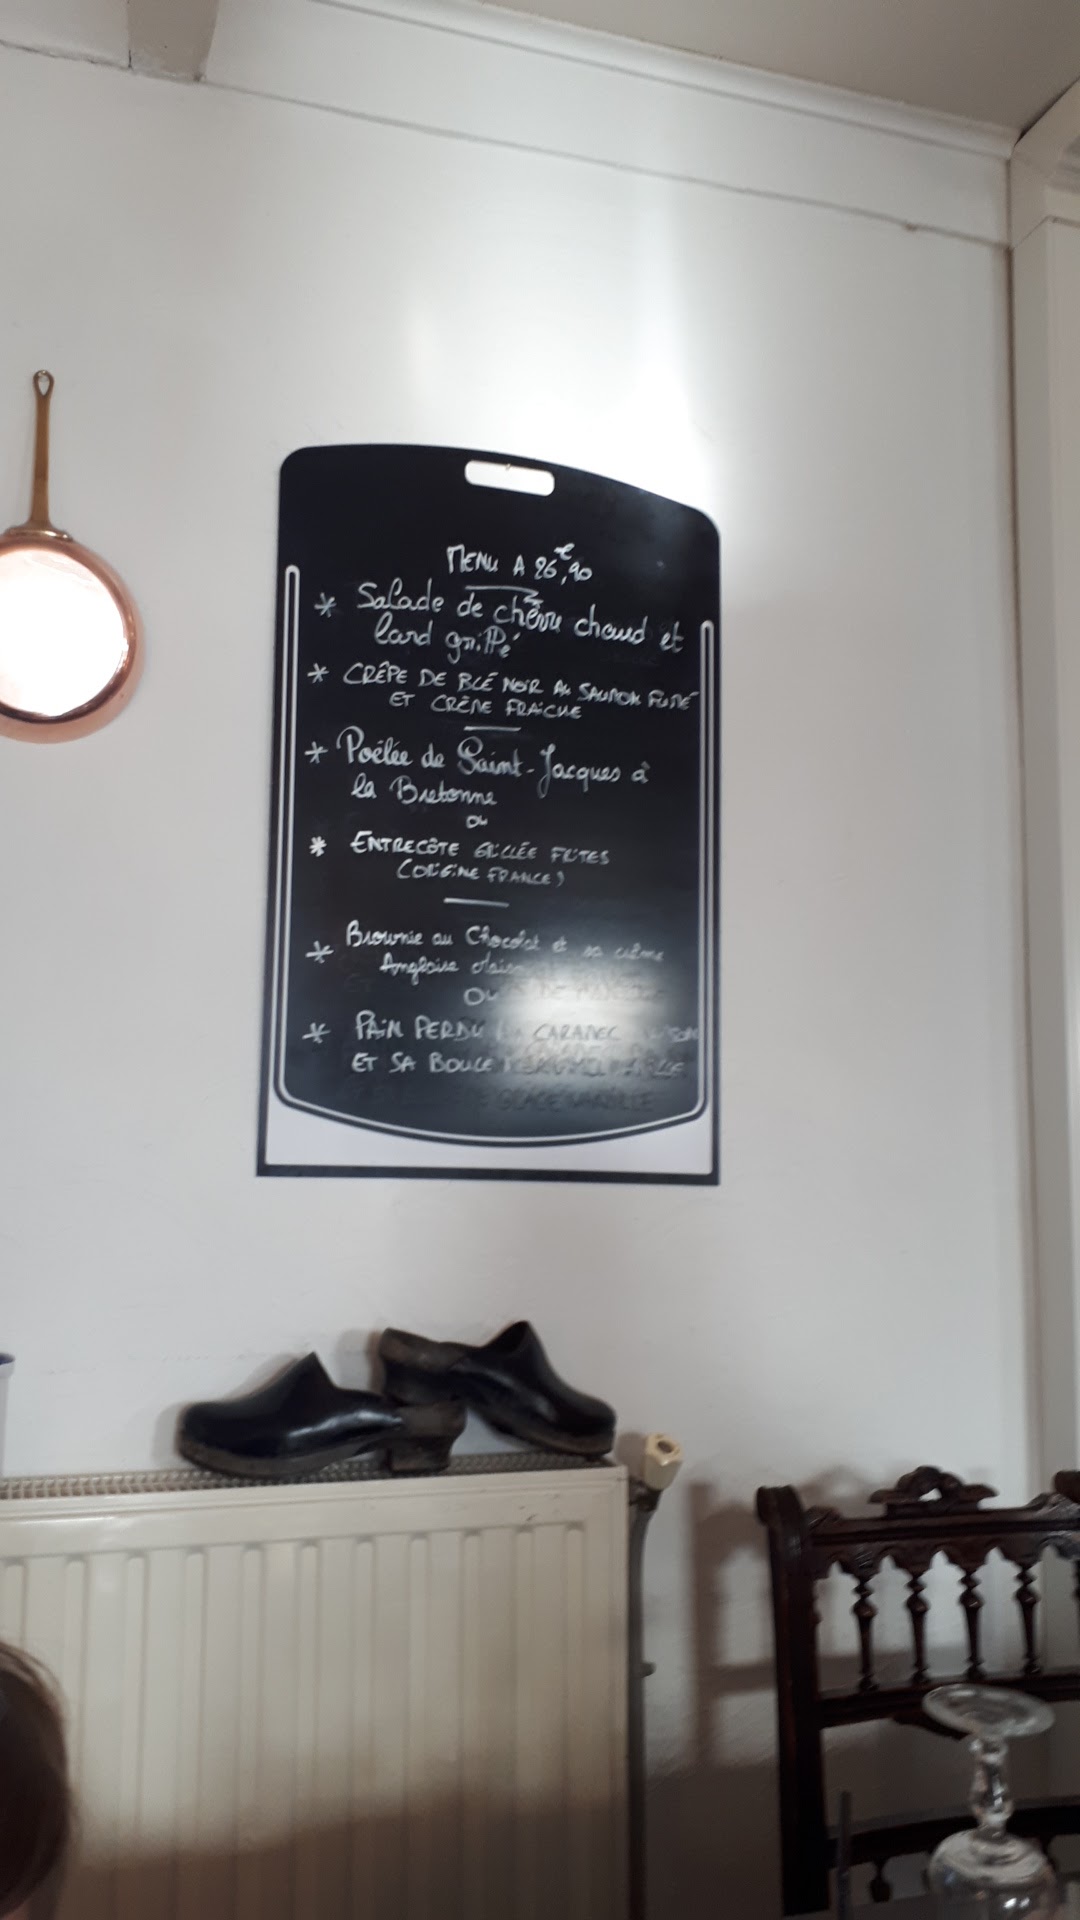 MENU A 26€,90
* Salade de chèvre chaud et
lard grillé
* CRÊPE DE BLÉ NOIR AU SAUMON FUMÉ
ET CRÈME FRAICHE
* Poêlée de Saint-Jacques à
la Bretonne
ou
* ENTRECÔTE GRILLÉE FRITES
(ORIGINE FRANCE)
* Brownie au Chocolat et sa crème
Anglaise Maison
OU
* PAIN PERDU CARAMEL MAISON
ET SA BOULE
GLACE VANILLE